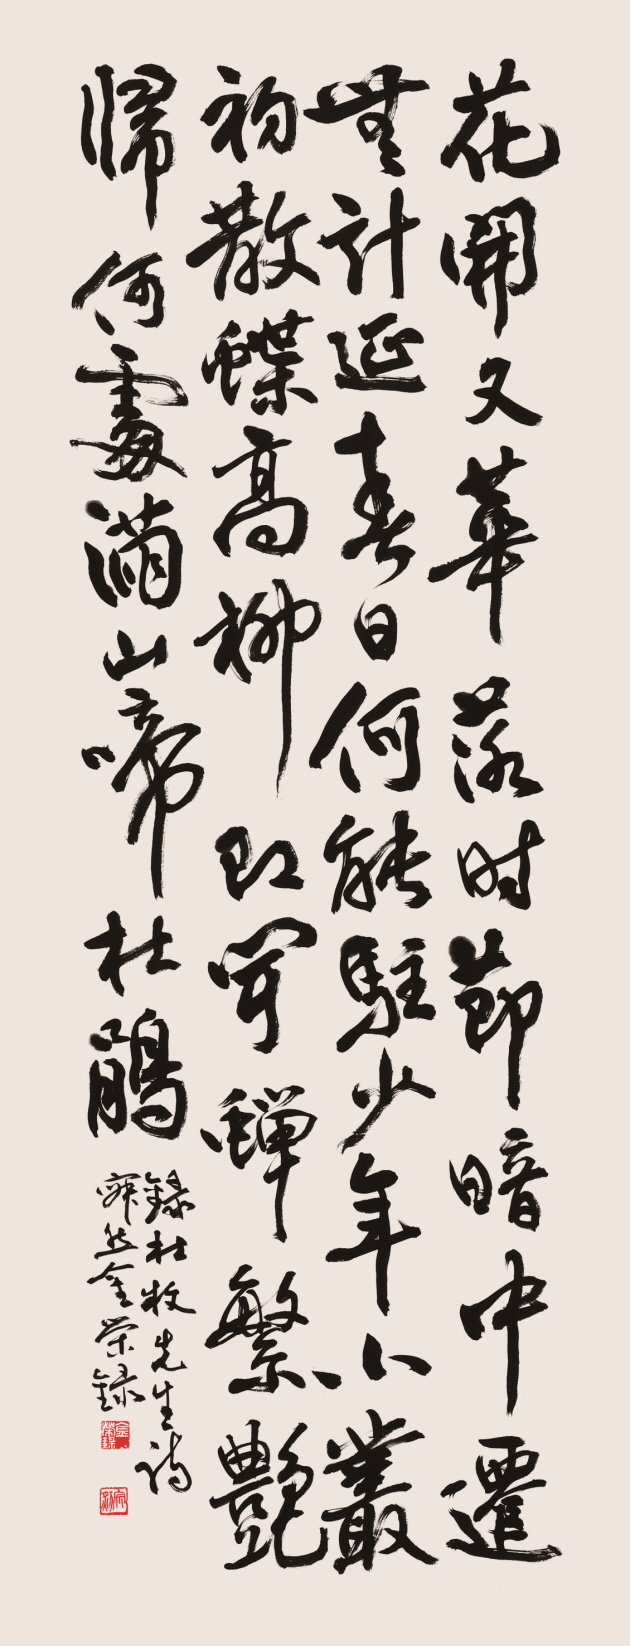 花開又華落时節暗中遷
無計延春日何能駐少年小叢
初散蝶高柳即聞蟬繁艷
歸何處滿山啼杜鵑
録杜牧先生詩
然金荣録